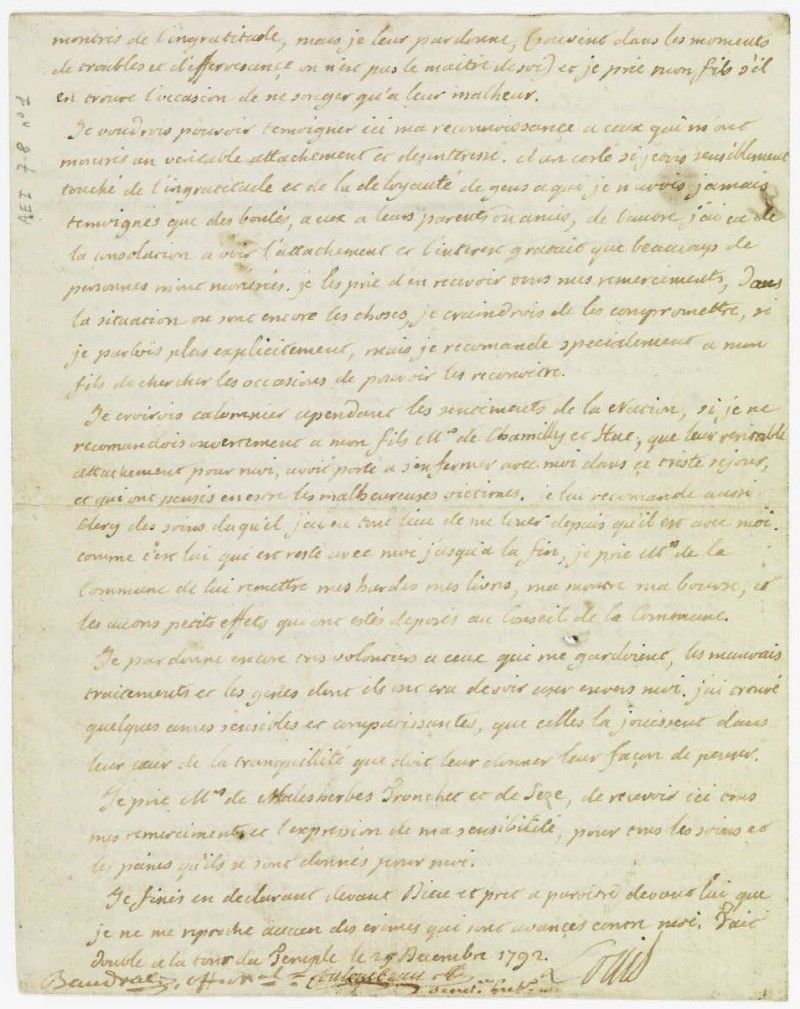 montrés de l'ingratitude, mais je leur pardonne, (souvent dans les moments
de troubles et d'effervescence on n'est pas le maitre de soi) et je prie mon fils s'il
en trouve l'occasion de ne songer qu'a leur malheur.
Je voudrois pouvoir temoigner ici ma reconnoissance a ceux qui m'ont
montrés un veritable attachement et desinteressé. d'un coté si j'etois sensiblement
touché de l'ingratitude et de la deloyauté de gens a qui je n'avois jamais
temoignés que des bontés, a eux a leurs parents ou amis, de l'autre j'ai eu de
la consolation a voir l'attachement et l'interest gratuit que beaucoup de
personnes m'ont montrés. je les prie d'en recevoir tous mes remerciments, dans
la situation ou sont encore les choses, je craindrois de les compromettre, si
je parlois plus explicitement, mais je recomande specialement a mon
fils de chercher les occasions de pouvoir les reconoitre.
Je croirois calomnier cependant les sentiments de la Nation, si je ne
recomandois ouvertement a mon fils Mrs de Chamilly et Hue, que leur veritable
attachement pour moi, avoit porté a s'enfermer avec moi dans ce triste sejour,
et qui ont pensés en estre les malheureuses victimes. je lui recomande aussi
Clery des soins duquel j'ai eu tout lieu de me louer depuis qu'il est avec moi.
comme c'est lui qui est resté avec moi jusqu'a la fin, je prie Mrs de la
Commune de lui remettre mes hardes mes livres, ma montre ma bourse, et
les autres petits effets qui ont estés deposés au Conseil de la Commune.
Je pardonne encore tres volontiers a ceux qui me gardoient, les mauvais
traitements et les genes dont ils ont cru devoir user envers moi. j'ai trouvé
quelques ames sensibles et compatissantes, que celles la jouissent dans
leur cœur de la tranquilité que doit leur donner leur façon de penser.
Je prie Mrs de Malesherbes Tronchet et de Seze, de recevoir ici tous
mes remerciments et l'expression de ma sensibilité, pour tous les soins et
les peines qu'ils se sont donnés pour moi.
Je finis en declarant devant Dieu et pret a paroitre devant lui que
je ne me reproche aucun des crimes qui sont avancés contre moi. Fait
double a la tour du Temple le 25 Decembre 1792.
Louis
Baudrais, off. m.al
AEI 7-8 no 1